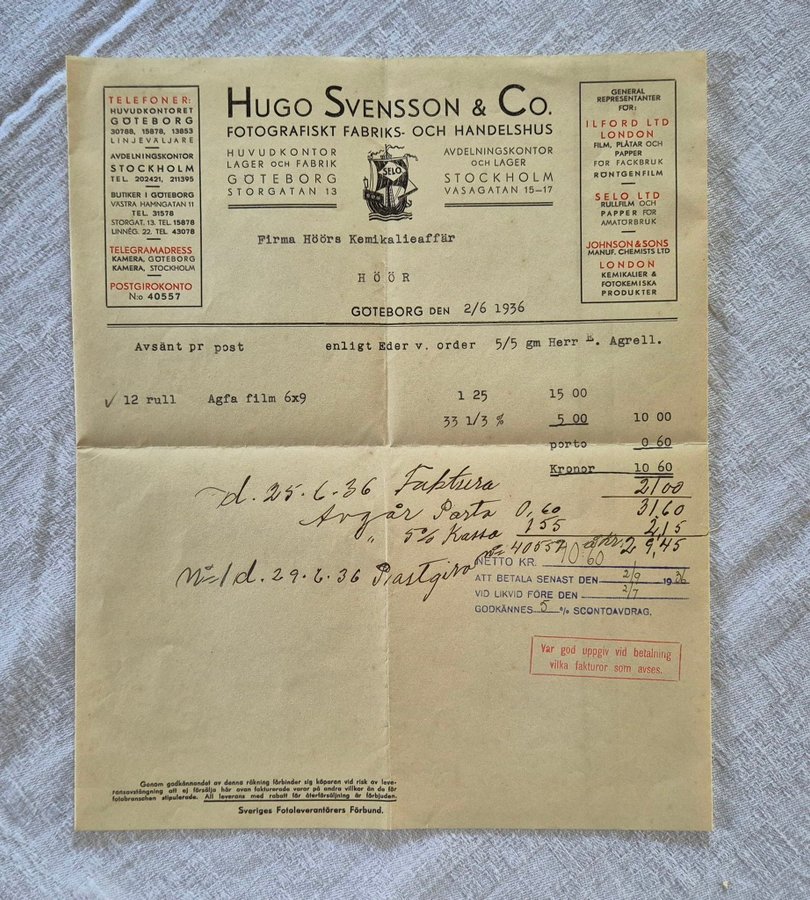 TELEFONER:
HUVUDKONTORET
GÖTEBORG
30788, 15878, 13853
LINJEVÄLJARE
AVDELNINGSKONTOR
STOCKHOLM
TEL. 202421, 211395
BUTIKER I GÖTEBORG
VÄSTRA HAMNGATAN 11
TEL. 31578
STORGAT. 13. TEL. 15878
LINNÉG. 22. TEL. 43078
TELEGRAMADRESS
KAMERA, GÖTEBORG
KAMERA, STOCKHOLM
POSTGIROKONTO
N:o 40557
HUGO SVENSSON & CO.
FOTOGRAFISKT FABRIKS- OCH HANDELSHUS
HUVUDKONTOR
LAGER OCH FABRIK
GÖTEBORG
STORGATAN 13
SELO
AVDELNINGSKONTOR
OCH LAGER
STOCKHOLM
VASAGATAN 15—17
GENERAL
REPRESENTANTER
FÖR:
ILFORD LTD
LONDON
FILM, PLÅTAR OCH
PAPPER
FÖR FACKBRUK
RÖNTGENFILM
SELO LTD
RULLFILM OCH
PAPPER FÖR
AMATÖRBRUK
JOHNSON & SONS
MANUF. CHEMISTS LTD
LONDON
KEMIKALIER &
FOTOKEMISKA
PRODUKTER
Firma Höörs Kemikalieaffär
HÖÖR
GÖTEBORG DEN 2/6 1936
Avsänt pr post enligt Eder v. order 5/5 gm Herr E. Agrell.
✓ 12 rull Agfa film 6x9 1 25 15 00
33 1/3 % 5 00 10 00
porto 0 60
Kronor 10 60
d. 25.6.36 Faktura 21 00
Avgår Porto 0,60 31,60
" 5% Kassa 1 55 2,15
40557 Kr. 29,45
d. 29.6.36 Postgiro
NETTO KR. 10:60
ATT BETALA SENAST DEN 2/9 1936
VID LIKVID FÖRE DEN 2/7
GODKÄNNES 5 % SCONTOAVDRAG.
Var god uppgiv vid betalning
vilka fakturor som avses.
Genom godkännandet av denna räkning förbinder sig köparen vid risk av leve-
ransavstängning att ej försälja här ovan fakturerade varor på andra villkor än de för
fotobranschen stipulerade. All leverans med rabatt för återförsäljning är förbjuden.
Sveriges Fotoleverantörers Förbund.